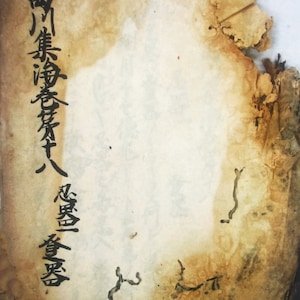 萬川集海巻第十八
忍器一 登器